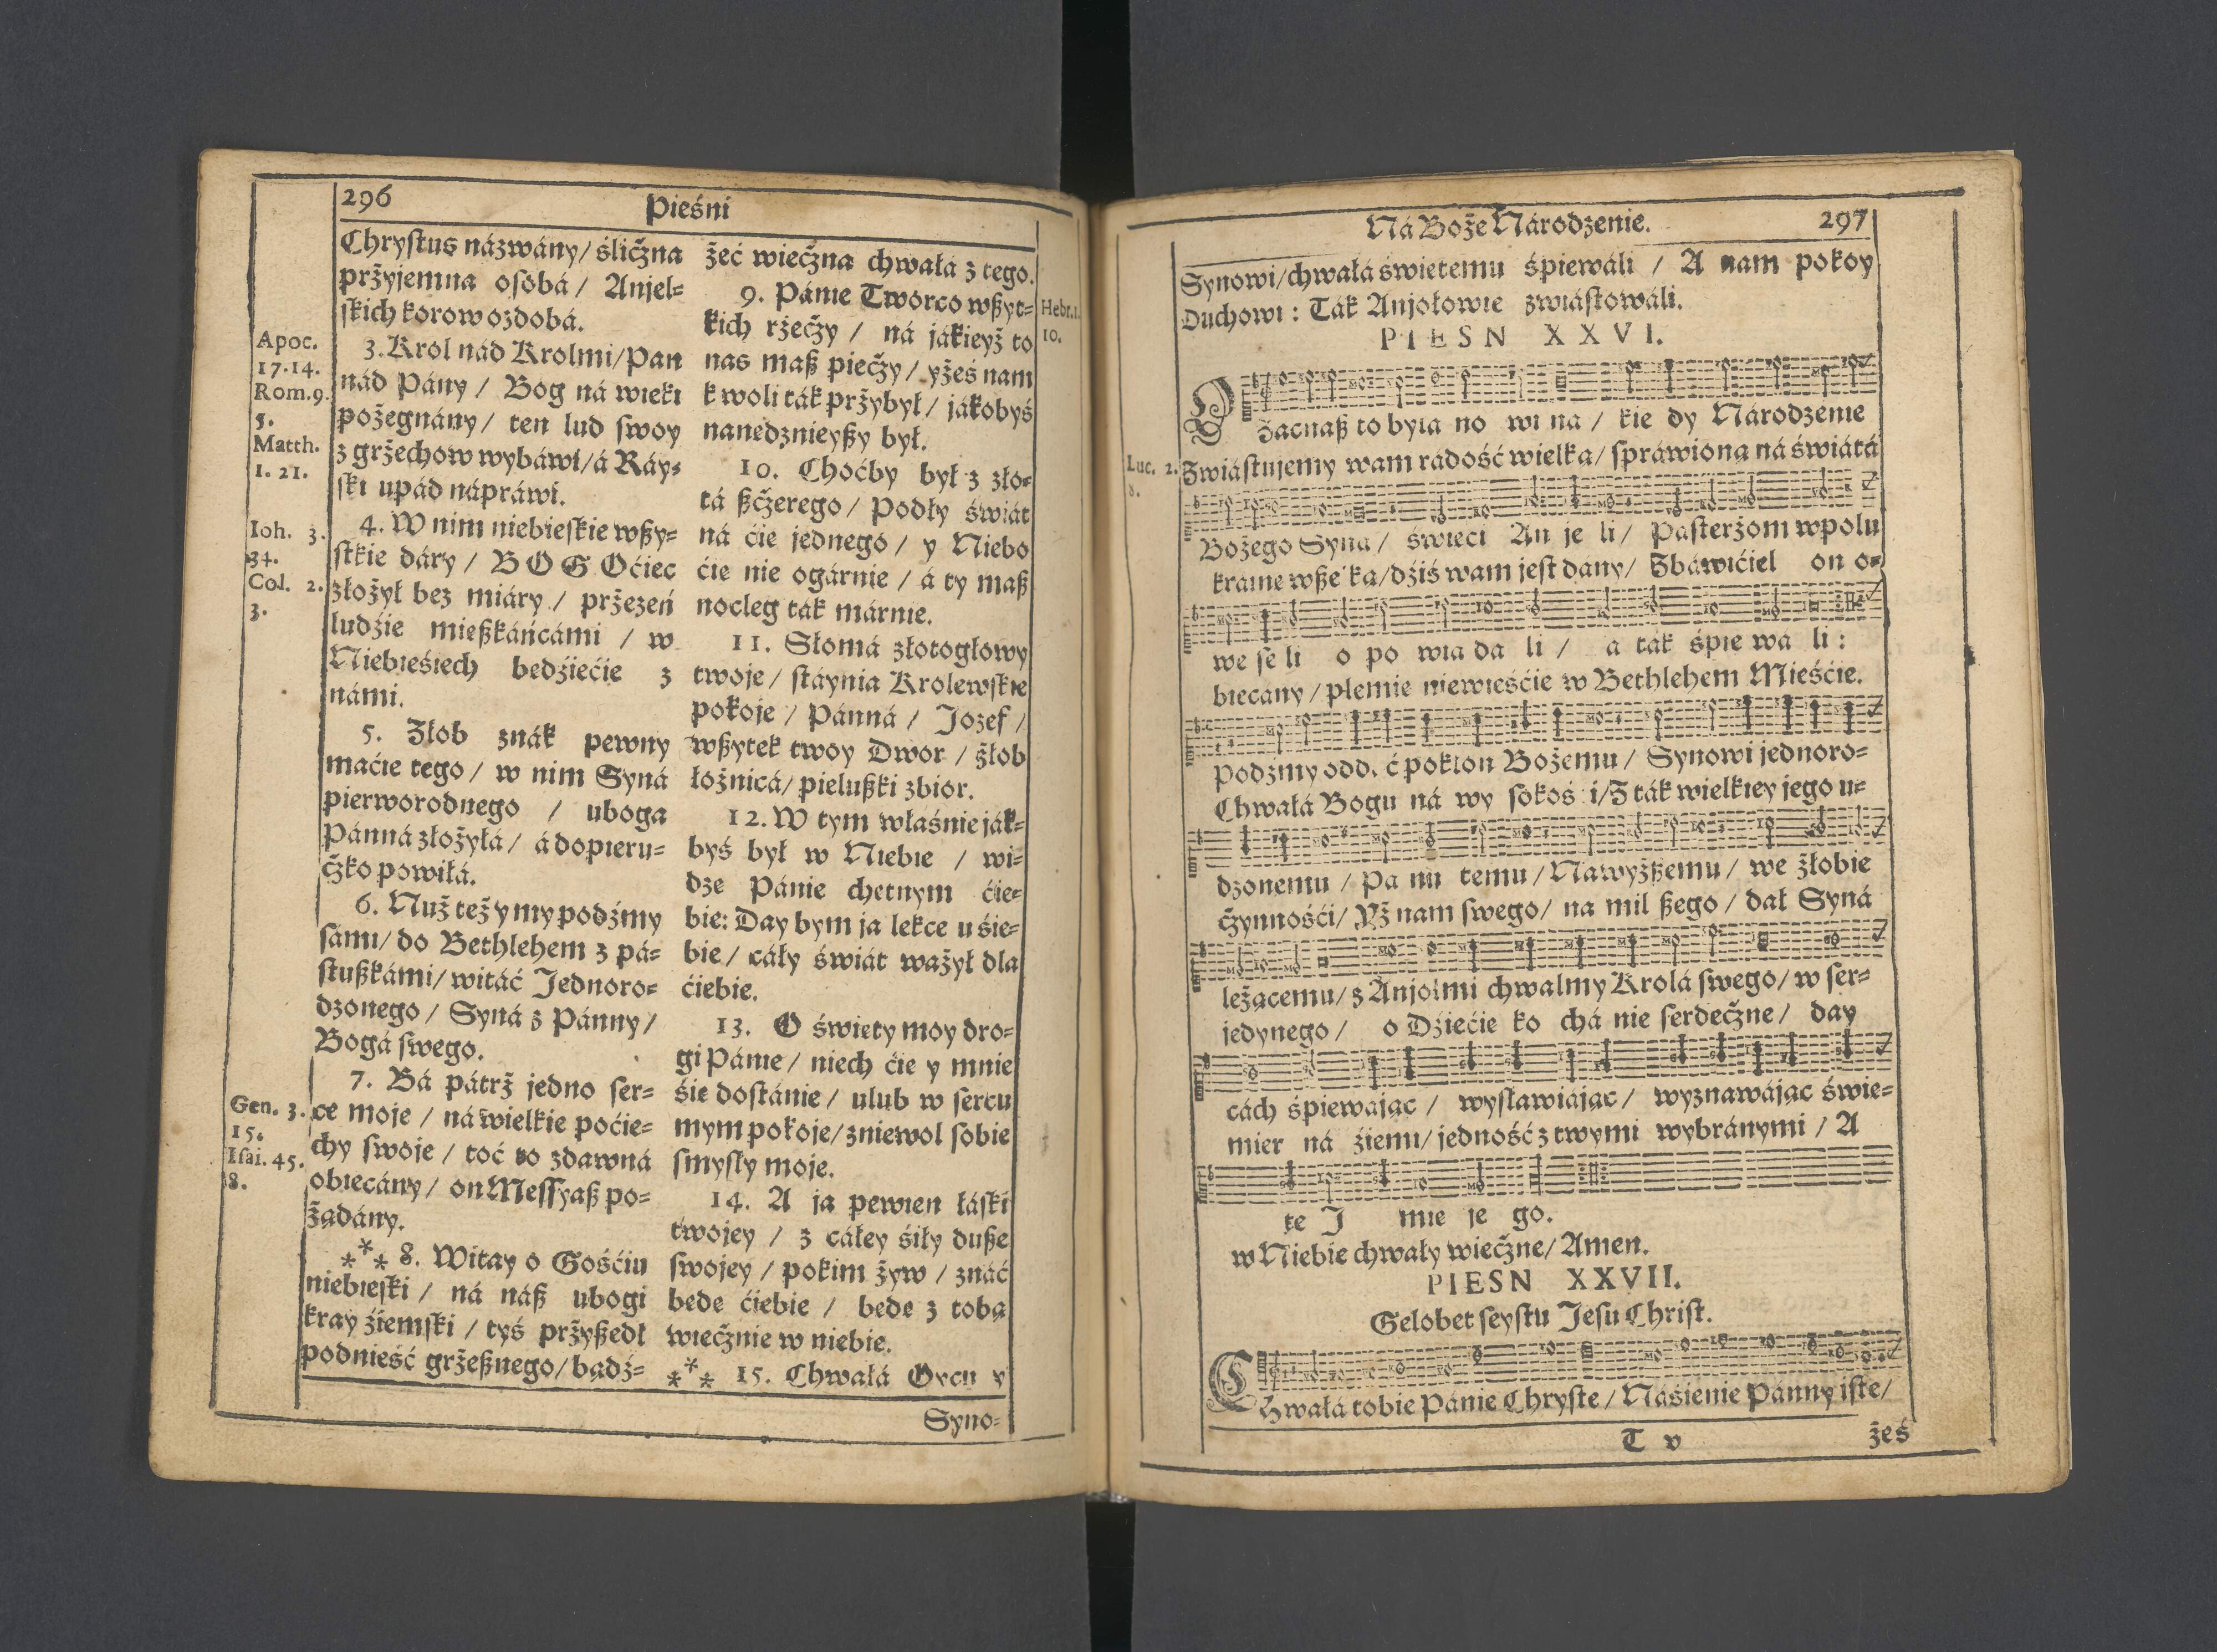 296
Pieśni
Chrystus názwány/ śliczna
przyjemna osobá/ Anjel=
skich korow ozdobá.
3. Krol nád Krolmi/ Pan
nád Pány/ Bog ná wieki
pożegnány/ ten lud swoy
z grzechow wybáwi/ á Ráy=
ski upád nápráwi.
4. W nim niebieskie wszy=
stkie dáry/ BOG Oćiec
złożył bez miáry/ przezeń
ludźie mieszkáńcámi/ w
Niebieśiech bedźiećie z
námi.
5. Żłob znák pewny
maćie tego/ w nim Syná
pierworodnego / uboga
Pánná złożyłá/ á dopieru=
czko powiłá.
6. Nuż też y my podźmy
sámi/ do Bethlehem z pá=
stuszkámi/ witáć Jednoro=
dzonego/ Syná z Pánny/
Bogá swego.
7. Bá pátrz jedno ser=
ce moje/ ná wielkie poćie=
chy swoje/ toć to zdawná
obiecány/ on Messyasz po=
żądány.
*** 8. Witay o Gośćiu
niebieski/ ná nász ubogi
kray źiemski/ tyś przyszedł
podnieść grzesznego/ bądź=
Apoc.
17.14.
Rom. 9.
5.
Matth.
1. 21.
Ioh. 3.
34.
Col. 2.
3.
Gen. 3.
15.
Isai. 45.
8.
żeć wieczna chwałá z tego.
9. Pánie Tworco wszyt=
kich rzeczy / ná jákieyż to
nas masz pieczy/ yżeś nam
k woli ták przybył/ jákobyś
nanedznieyszy był.
10. Choćby był z zło=
tá szczerego/ Podły świát
ná ćie jednego/ y Niebo
ćie nie ogárnie/ á ty masz
nocleg ták márnie.
11. Słomá złotogłowy
twoje/ stáynia Krolewskie
pokoje/ Pánná/ Jozef/
wszytek twoy Dwor/ żłob
łożnicá/ pieluszki zbior.
12. W tym właśnie ják=
byś był w Niebie / wi=
dze Pánie chetnym ćie=
bie: Day bym ja lekce u śie=
bie/ cáły świát ważył dla
ćiebie.
13. O świety moy dro=
gi Pánie/ niech ćie y mnie
śie dostánie/ ulub w sercu
mym pokoje/ zniewol sobie
smysły moje.
14. A ja pewien łáski
twojey / z cáłey śiły dusze
swojey / pokim żyw / znáć
bede ćiebie / bede z tobą
wiecznie w niebie.
*** 15. Chwałá Oycu y
Hebr. 1.
10.
Syno=
Ná Boże Národzenie.
297
Synowi/ chwałá świetemu śpiewáli / A nam pokoy
Duchowi: Ták Anjołowie zwiástowáli.
PIESN XXVI.
Zacnasz to byłá no wi na/ kie dy Národzenie
Zwiástujemy wam rádość wielka/ spráwiona ná świátá
Bożego Syna/ świeci An je li/ Pasterzom w polu
kráine wsze ka/ dźiś wam jest dány/ Zbáwićiel on o=
we se li o po wia da li/ a ták śpie wa li:
biecány/ plemie niewieśćie w Bethlehem Mieśćie.
Podźmy odd. ć pokłon Bożemu/ Synowi jednoro=
Chwałá Bogu ná wy sokoś i/ Z ták wielkiey jego u=
dzonemu/ Pa nu temu/ Nawyższemu/ we żłobie
czynnośći/ Yż nam swego/ na mil szego/ dał Syná
leżącemu/ z Anjołmi chwalmy Krolá swego/ w ser=
jedynego/ o Dźiećie ko chá nie serdeczne/ day
cách śpiewając/ wysławiając/ wyznawájąc świe=
mier ná źiemi/ jedność z twymi wybránymi/ A
te J mie je go.
w Niebie chwały wieczne/ Amen.
Luc. 2.
8.
PIESN XXVII.
Gelobet seystu Jesu Christ.
Chwałá tobie Pánie Chryste/ Náśienie Pánny iste/
T v
żeś